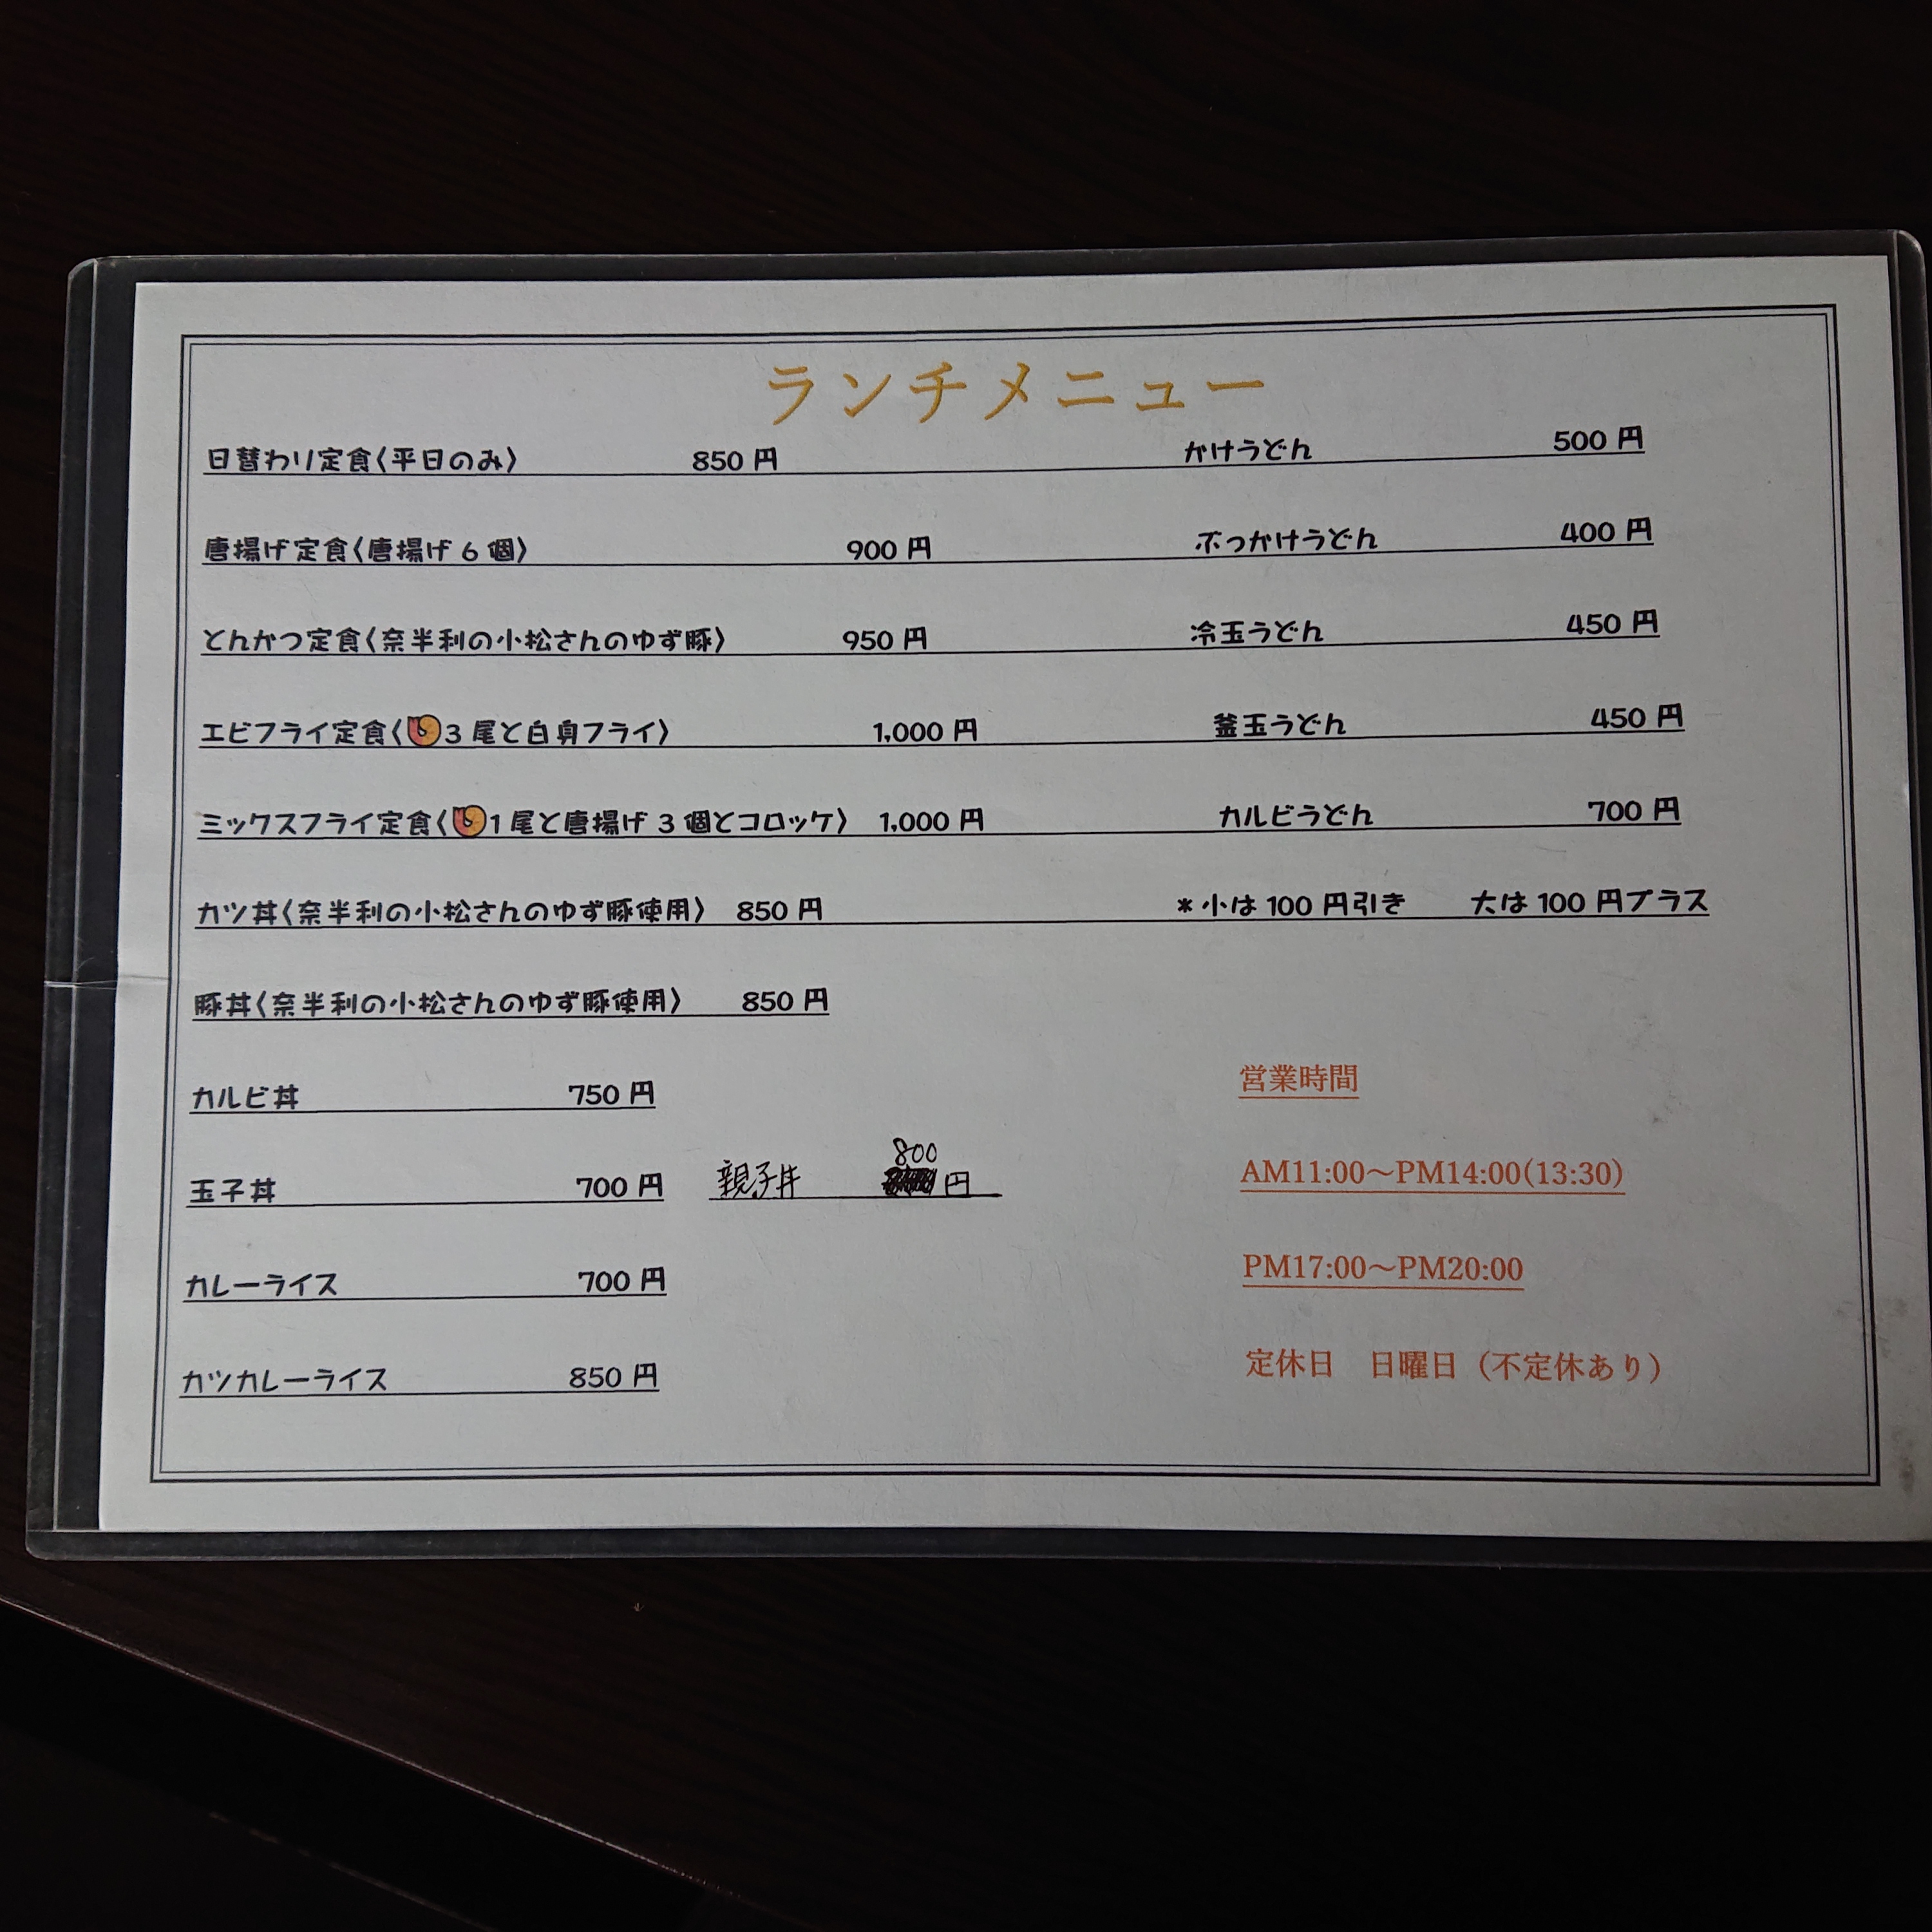 ランチメニュー
日替わり定食〈平日のみ〉 850 円
唐揚げ定食〈唐揚げ 6 個〉 900 円
とんかつ定食〈奈半利の小松さんのゆず豚〉 950 円
エビフライ定食〈🍤3 尾と白身フライ〉 1,000 円
ミックスフライ定食〈🍤1 尾と唐揚げ 3 個とコロッケ〉 1,000 円
カツ丼〈奈半利の小松さんのゆず豚使用〉 850 円
豚丼〈奈半利の小松さんのゆず豚使用〉 850 円
カルビ丼 750 円
玉子丼 700 円 親子丼 800 円
カレーライス 700 円
カツカレーライス 850 円
かけうどん 500 円
ぶっかけうどん 400 円
冷玉うどん 450 円
釜玉うどん 450 円
カルビうどん 700 円
*小は 100 円引き 大は 100 円プラス
営業時間
AM11:00～PM14:00(13:30)
PM17:00～PM20:00
定休日 日曜日（不定休あり）